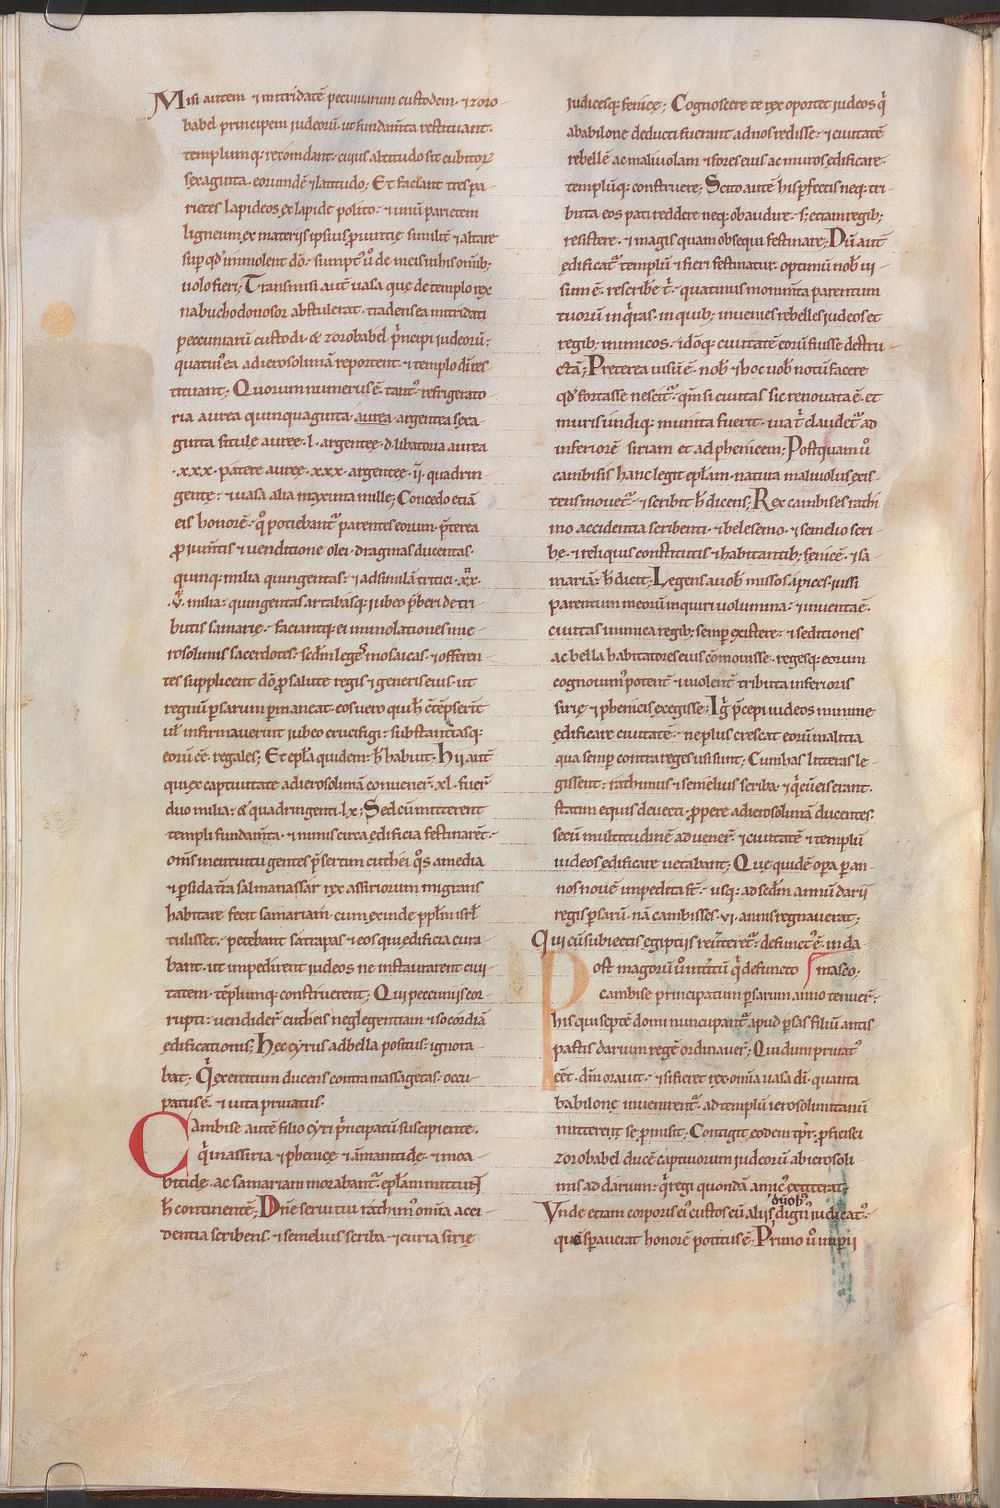 Misi autem ⁊ mitridatē pecuniarum custodem · ⁊ zoro-
babel principem iudeorū · ut fundam̄ta restituant ·
templumq; reęondant · cuius altitudo sit cubitorꝝ
sexaginta · eorundē ⁊ latitudo; Et faciant tres pa-
rietes lapideos ex lapide polito · ⁊ unū parietem
ligneum ex materiis ipsius ꝓuintię similit̄ ⁊ altare
sup qd' immolent dō · sumptꝰ ů de meis in his omib;
uolo fieri; Transmisi aut̄ uasa que de templo rex
nabuchodonosor abstulerat · tradens ea mitridati
peccuniarū custodi · & zorobabel p̄ncipi iudeorū ·
quatin' ea adierosolimā reportent · ⁊ templo dn̄i res-
tituant; Quorum numerus ē · tant' · refrigerato-
ria aurea quinquaginta · aurea · argentea sexa-
ginta situle auree · l · argenteę · d · libatoria aurea
· xxx · patere auręę · xxx · argenteę · ii · quadrin-
gentę · ⁊ uasa alia maxima mille; Concedo etiā
eis honorē · q̊ potiebant᷑ parentes eorum · p̄terea
ꝓ ium̄tis ⁊ uenditione olei · dragmas ducentas ·
quinq; milia quingentas · ⁊ ad similā tritici · xx ·
· v̄ · milia · quingentas artabasq; iubeo p̄beri de tri-
butis samarię · faciantq; ei immolationes iuie-
rosolimis sacerdotes · scd̄m leges mosaicas · ⁊ offeren-
tes supplicent dō ꝓ salute regis ⁊ generis eius · ut
regnū ꝑsarum ꝑmaneat · eos uero qui h̄ cōtēpserīt
ul' infirmauerint iubeo crucifigi · substantiasq;
eorū cē · regales; Et epl̄a quidem · h̄ habuit · Hii aut̄
qui ex captiuitate adierosolimā conuener̄ · xl · fuer̄
duo milia · & quadringenti · lx; Sed cū mitterent
templi fundam̄ta · ⁊ nimis circa ędificia festinarēt ·
om̄s in circuitu gentes p̄sertim cuthei q̊s amedia
⁊ ꝑsida t̄ra salmanassar rex assiriorum migrans
habitare fecit samariam · cum exinde pplm̄ isrł
tulisset · petebant satrapas ⁊ eos qui edificia cura-
bant · ut impedirent iudeos ne instaurarent ciui-
tatem · tēplumq; construerent; Qui peccuniis cor-
rupti · uendider̄ cutheis neglegentiam ⁊ socordiā
edificationis; Hec cyrus ad bella positus · ignora-
bat; Q̄ exercitum ducens contra massagetas · occu-
patus ē · ⁊ uita priuatus ·
Cambise autē filio cyri p̄ncipatū suscipiente ·
q̄ in assiria ⁊ phenicę ⁊ āmanitidę · ⁊ moa-
bitidę · ac samariam morabant᷑ · epl̄am mittunt
h̄ continentē; Dn̄e seruitui rathim' om̄ia acci-
dentia scribens · ⁊ semelius scriba · ⁊ curia sirię
iudicesq; fenicę; Cognoscere te rex oportet iudeos q̄
ababilone deducti fuerant ad nos redisse · ⁊ ciuitatē
rebellē ac maliuolam ⁊ fores eius ac muros edificare ·
templūq; construere; Scito autē his ꝑfectis neq; tri-
buta eos pati reddere neq; obaudire · s; etiam regib;
resistere · ⁊ magis quam obsequi festinare; Dū aut̄
ędificat᷑ templū ⁊ fieri festinatur · optimū nob' ui-
sum ē · rescribe t̄ · quatinus monim̄ta parentum
tuorū inq̄ras · in quib; inuenies rebelles iudeos et
regib; inimicos · ⁊ idōq; ciuitatē eorū fuisse destru-
ctā; Preterea uisū ē · nob' ⁊ hoc uob' notū facere
qd' fortasse nescit᷑ · qm̄ si ciuitas sic renouata ē · et
muris undiq; munita fuerit · uia t̄ claudet᷑ ad
inferiorē siriam et ad phenicem; Postquam ů
cambisis hanc legit epl̄am · natura maliuolus exis-
tens mouet᷑ · ⁊ scribit h̄ dicens; Rex cambises rathi-
mo accidentia scribenti · ⁊ belesemo · ⁊ semelio scri-
be · ⁊ reliquis constitutis ⁊ habitantib; fenicē · ⁊ sa-
mariā · h̄ dicit; Legens a uob' missos apices · iussi
parentum meorū inquiri uolumina · ⁊ inuenta ē ·
ciuitas inimica regib; semp existere · ⁊ seditiones
ac bella habitatores eius cōmouisse · regesq; eorum
cognouim' potent̄ · ⁊ uiolent̄ tributa inferioris
sirię ⁊ phenicis exegisse; Iḡ p̄cepi iudeos minime
ędificare ciuitatē · ne plus crescat eorū malitia
qua semp contra reges usi sunt; Cum has litteras le-
gissent · rathimus ⁊ semelius scriba · ⁊ q̄ cū eis erant ·
statim equis deuecti · ꝓpere adierosolimā ducentes ·
secū multitudinē aduener̄ · ⁊ ciuitatē ⁊ templū
iudeos edificare uetabant; Que quidē opa p an-
nos nouē impedita st̄ · usq; ad scd̄m annū darii
regis ꝑsarū · nā cambisses · vi · annis regnauerat;
Qui cū subiectis egiptiis reuertet᷑ · defunct' ē in da-
Post magorū ů int̄itū q̄ defuncto maseo ·
cambise principatum ꝑsarum anno tenuer̄ ·
his qui septē domi nuncupant᷑ apud ꝑsas filiū antis-
pastis darium regē ordinauer̄; Qui dum priuat'
eēt · dm̄ orauit · ⁊ si fieret rex · om̄ia uasa dī · quanta
babilone inuenirent᷑ · ad templū ierosolimitanū
mitteret se ꝓmisit; Contigit eodem tpr̄ · ꝓficisci
zorobabel ducē captiuorum iudeorū abierosoli-
mis ad darium · q̄ regi quondā amic' extiterat ·
duob'
Vnde etiam corporis ei' custos cū aliis dign' iudicat' ·
que speauerat honorē potitus ē; Primo ů imperii